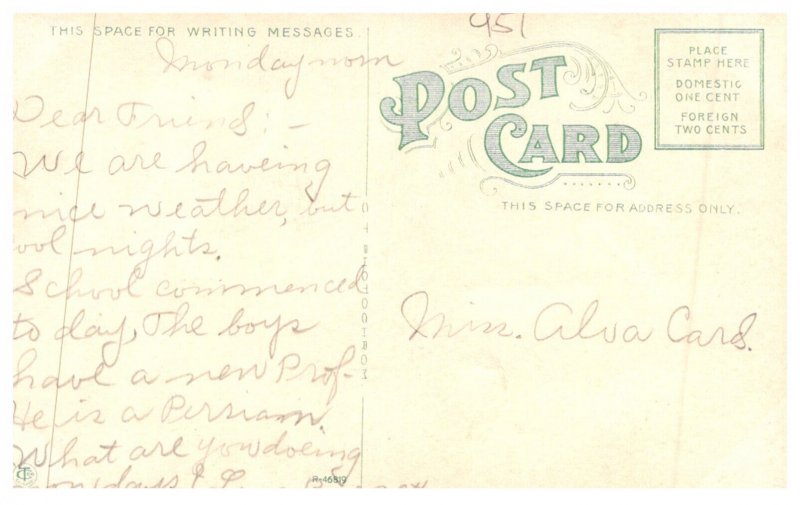 951
THIS SPACE FOR WRITING MESSAGES.
Monday morn
Dear Friend: -
We are haveing
nice weather, but
ool nights.
School commenced
to day, The boys
have a new Prof-
He is a Persian.
What are you doeing
days!
R-46819
POST
CARD
PLACE
STAMP HERE
DOMESTIC
ONE CENT
FOREIGN
TWO CENTS
THIS SPACE FOR ADDRESS ONLY.
Miss. Alva Card.